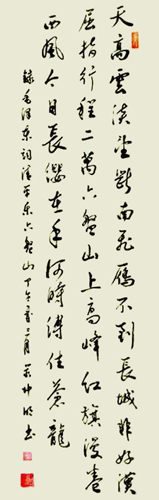 天高雲淡望斷南飛雁不到長城非好漢
屈指行程二萬六盤山上高峰紅旗漫卷
西風今日長纓在手何時縛住蒼龍
錄毛澤東詞清平樂六盤山丁 月 仲 書